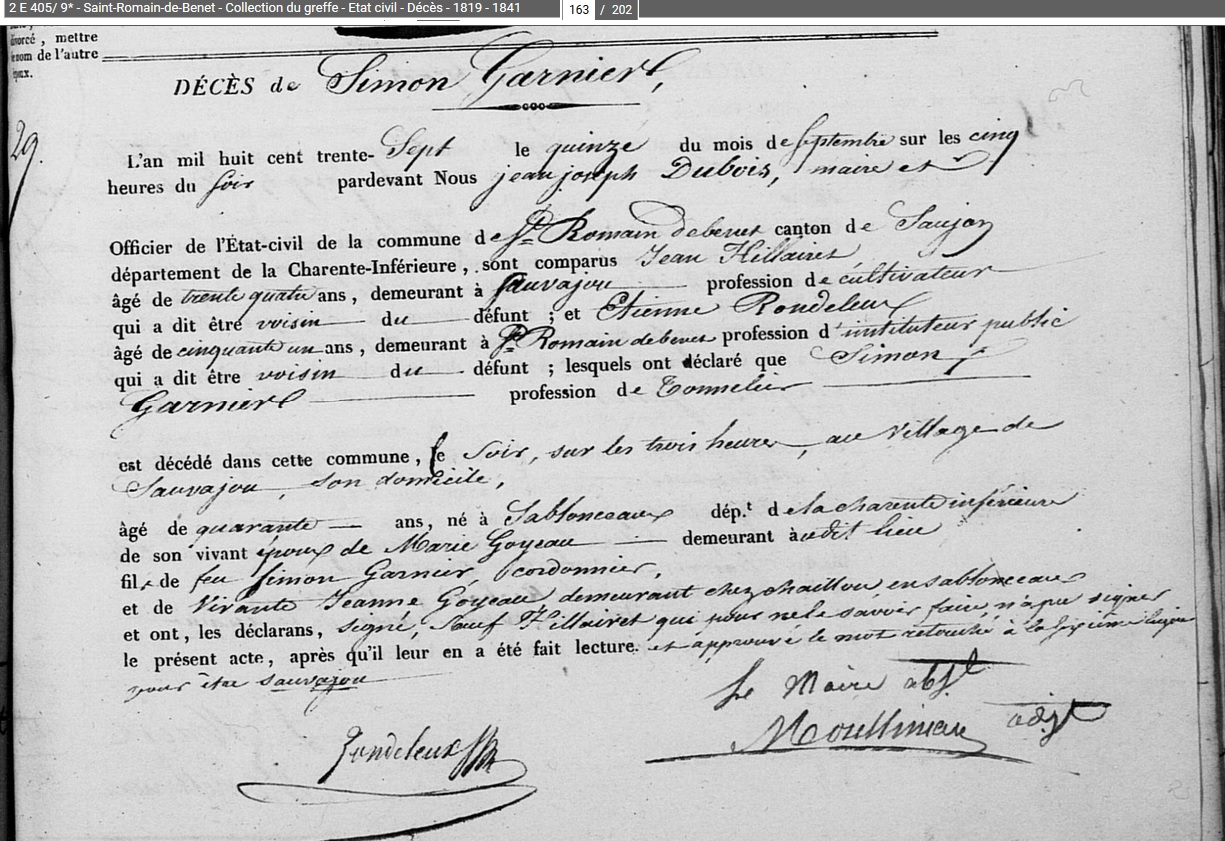 2 E 405/ 9* - Saint-Romain-de-Benet - Collection du greffe - Etat civil - Décès - 1819 - 1841
163 / 202
divorcé, mettre
le nom de l'autre
époux.
DÉCÈS de Simon Garnier,
29.
L'an mil huit cent trente-Sept le quinze du mois de Septembre sur les cinq
heures du soir pardevant Nous jean joseph Dubois, maire et
Officier de l'État-civil de la commune de St Romain debenet canton de Saujon
département de la Charente-Inférieure, sont comparus Jean Hillairet
âgé de trente quatre ans, demeurant à Sauvajou profession de cultivateur
qui a dit être voisin du défunt ; et Etienne Rondeleux
âgé de cinquante un ans, demeurant à St Romain debenet profession d'instituteur public
qui a dit être voisin du défunt ; lesquels ont déclaré que Simon
Garnier profession de Tonnelier
est décédé dans cette commune, ce soir, sur les trois heures, au village de
Sauvajou, son domicile,
âgé de quarante ans, né à Sablonceaux dép.t de la charente inférieure
de son vivant époux de Marie Goyeau demeurant audit lieu
fils de feu Simon Garnier, cordonnier,
et de Vivante Jeanne Goyeau demeurant chez chaillou, en sablonceaux
et ont, les déclarans, signé, Sauf Hillairet qui pour ne le savoir faire, n'a pu signer
le présent acte, après qu'il leur en a été fait lecture. et approuvé le mot retouché à la sixième ligne
pour être sauvajou
Le Maire abst
Rondeleux Moullineau adjt